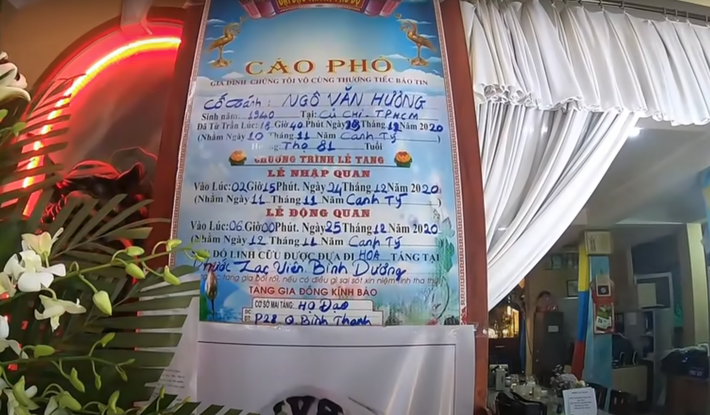 CÁO PHÓ
GIA ĐÌNH CHÚNG TÔI VÔ CÙNG THƯƠNG TIẾC BÁO TIN
NGÔ VĂN HƯỞNG
Sinh năm: 1940 Tại: CỦ CHI - TPHCM
Đã Từ Trần Lúc: 18 Giờ 40 Phút Ngày Tháng 12 Năm 2020
(Nhằm Ngày 10 Tháng 11 Năm Canh Tý)
Thọ 81 Tuổi
CHƯƠNG TRÌNH LỄ TANG
LỄ NHẬP QUAN
Vào Lúc: 02 Giờ 15 Phút. Ngày 24 Tháng 12 Năm 2020
(Nhằm Ngày 11 Tháng 11 Năm Canh Tý)
LỄ ĐỘNG QUAN
Vào Lúc: 06 Giờ 00 Phút. Ngày 25 Tháng 12 Năm 2020
(Nhằm Ngày 12 Tháng 11 Năm Canh Tý)
ĐÓ LINH CỮU ĐƯỢC ĐƯA ĐI HỎA TÁNG TẠI
Phước Lạc Viên Bình Dương
tang gia bối rối, nếu có điều gì sai sót xin niệm tình tha thứ
TANG GIA ĐỒNG KÍNH BÁO
CƠ SỞ MAI TÁNG: HỌ ĐẠO
P28 Q. Bình Thạnh